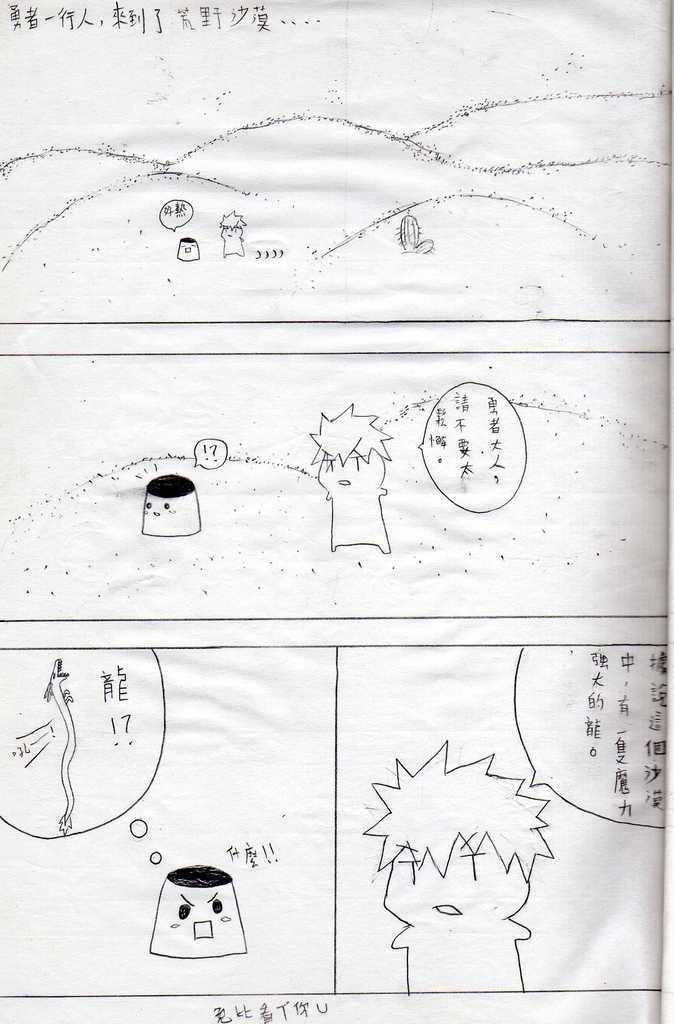 勇者一行人，來到了荒野沙漠、、、、
好熱
!?
勇者大人，
請不要太
鬆懈。
據說這個沙漠
中，有一隻魔力
強大的龍。
龍!?
吼!
什麼!!